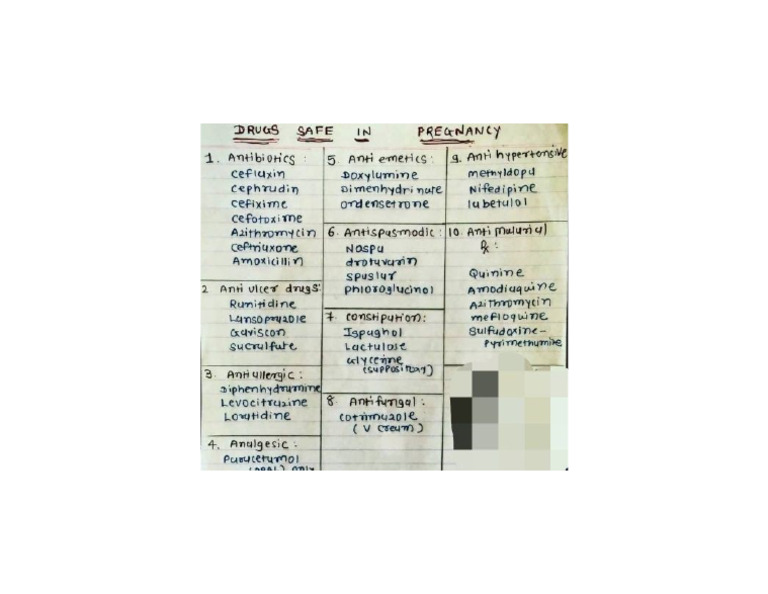 DRUGS SAFE IN PREGNANCY
1. Antibiotics :
cefluxin
cephrudin
cefixime
cefotoxime
Azithromycin
ceftriaxone
Amoxicillin
2 Anti ulcer drugs:
Runitidine
Lansoprazole
Gaviscon
sucralfate
3. Antiallergic :
Diphenhydramine
Levocitrazine
Loratidine
4. Analgesic :
Paracetamol
(oral) only
5. Anti emetics :
Doxylamine
Dimenhydrinate
ondensetrone
6. Antispasmodic :
Nospa
drotavarin
spaslar
phloroglucinol
7. constipation:
Ispaghol
Lactulose
Glycerine
(suppository)
8. Antifungal :
cotrimazole
( V cream )
9. Anti hypertensive
methyldopa
Nifedipine
labetalol
10. Anti malarial
Rx :
Quinine
Amodiaquine
Azithromycin
mefloquine
Sulfadoxine-
Pyrimethamine